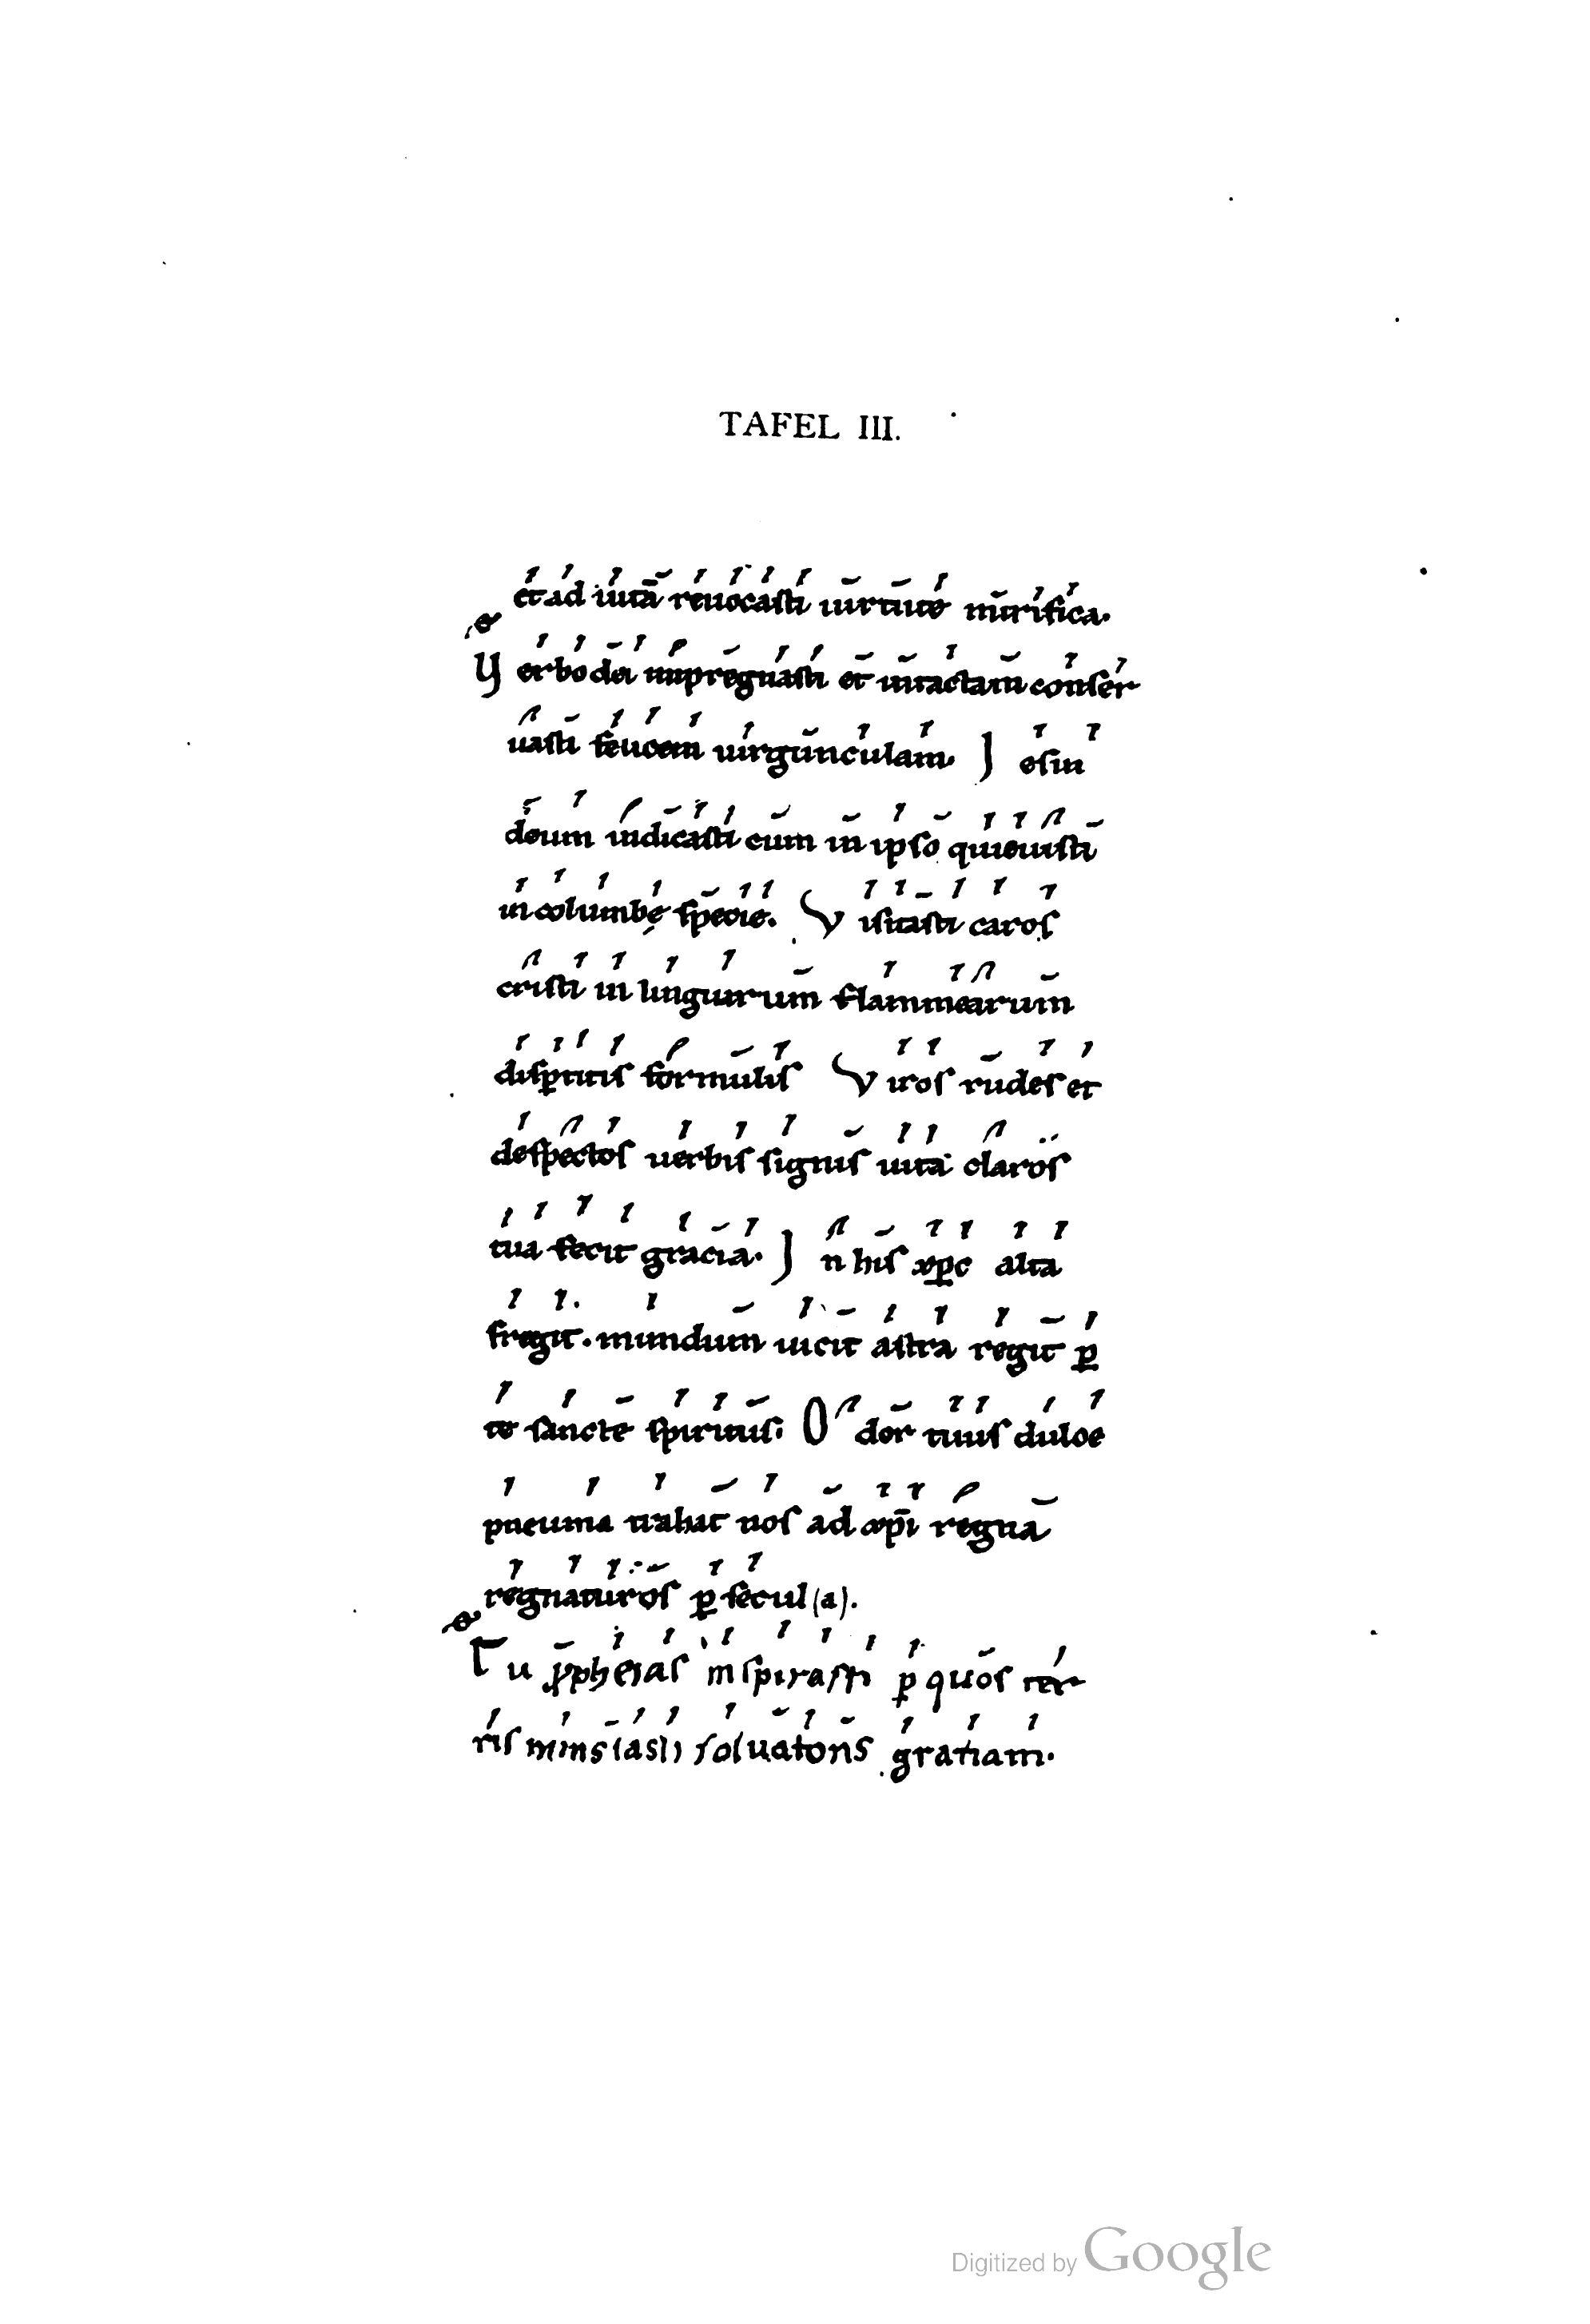 TAFEL III.
et ad uitā reuocasti uirtute mirifica.
Verbo dei impregnasti et intactam conser
uasti feucem uirgunculam. Iesum
deum indicasti cum in ipso quieuisti
in columbę specie. Visitasti caros
cristi in linguarum flammearum
disꝑtitis formulis Viros rudes et
despectos uerbis signis uita claros
tua fecit gracia. In his xp̄c alta
fregit. mundum uicit astra regit ꝑ
te sancte spiritus. Odor tuus dulce
pneuma trahat nos ad xp̄i regna
regnaturos ꝑ secul(a).
Tu ꝓphetas inspirasti ꝑ quos ter
ris mins(asti) soluatoris gratiam.
Digitized by Google